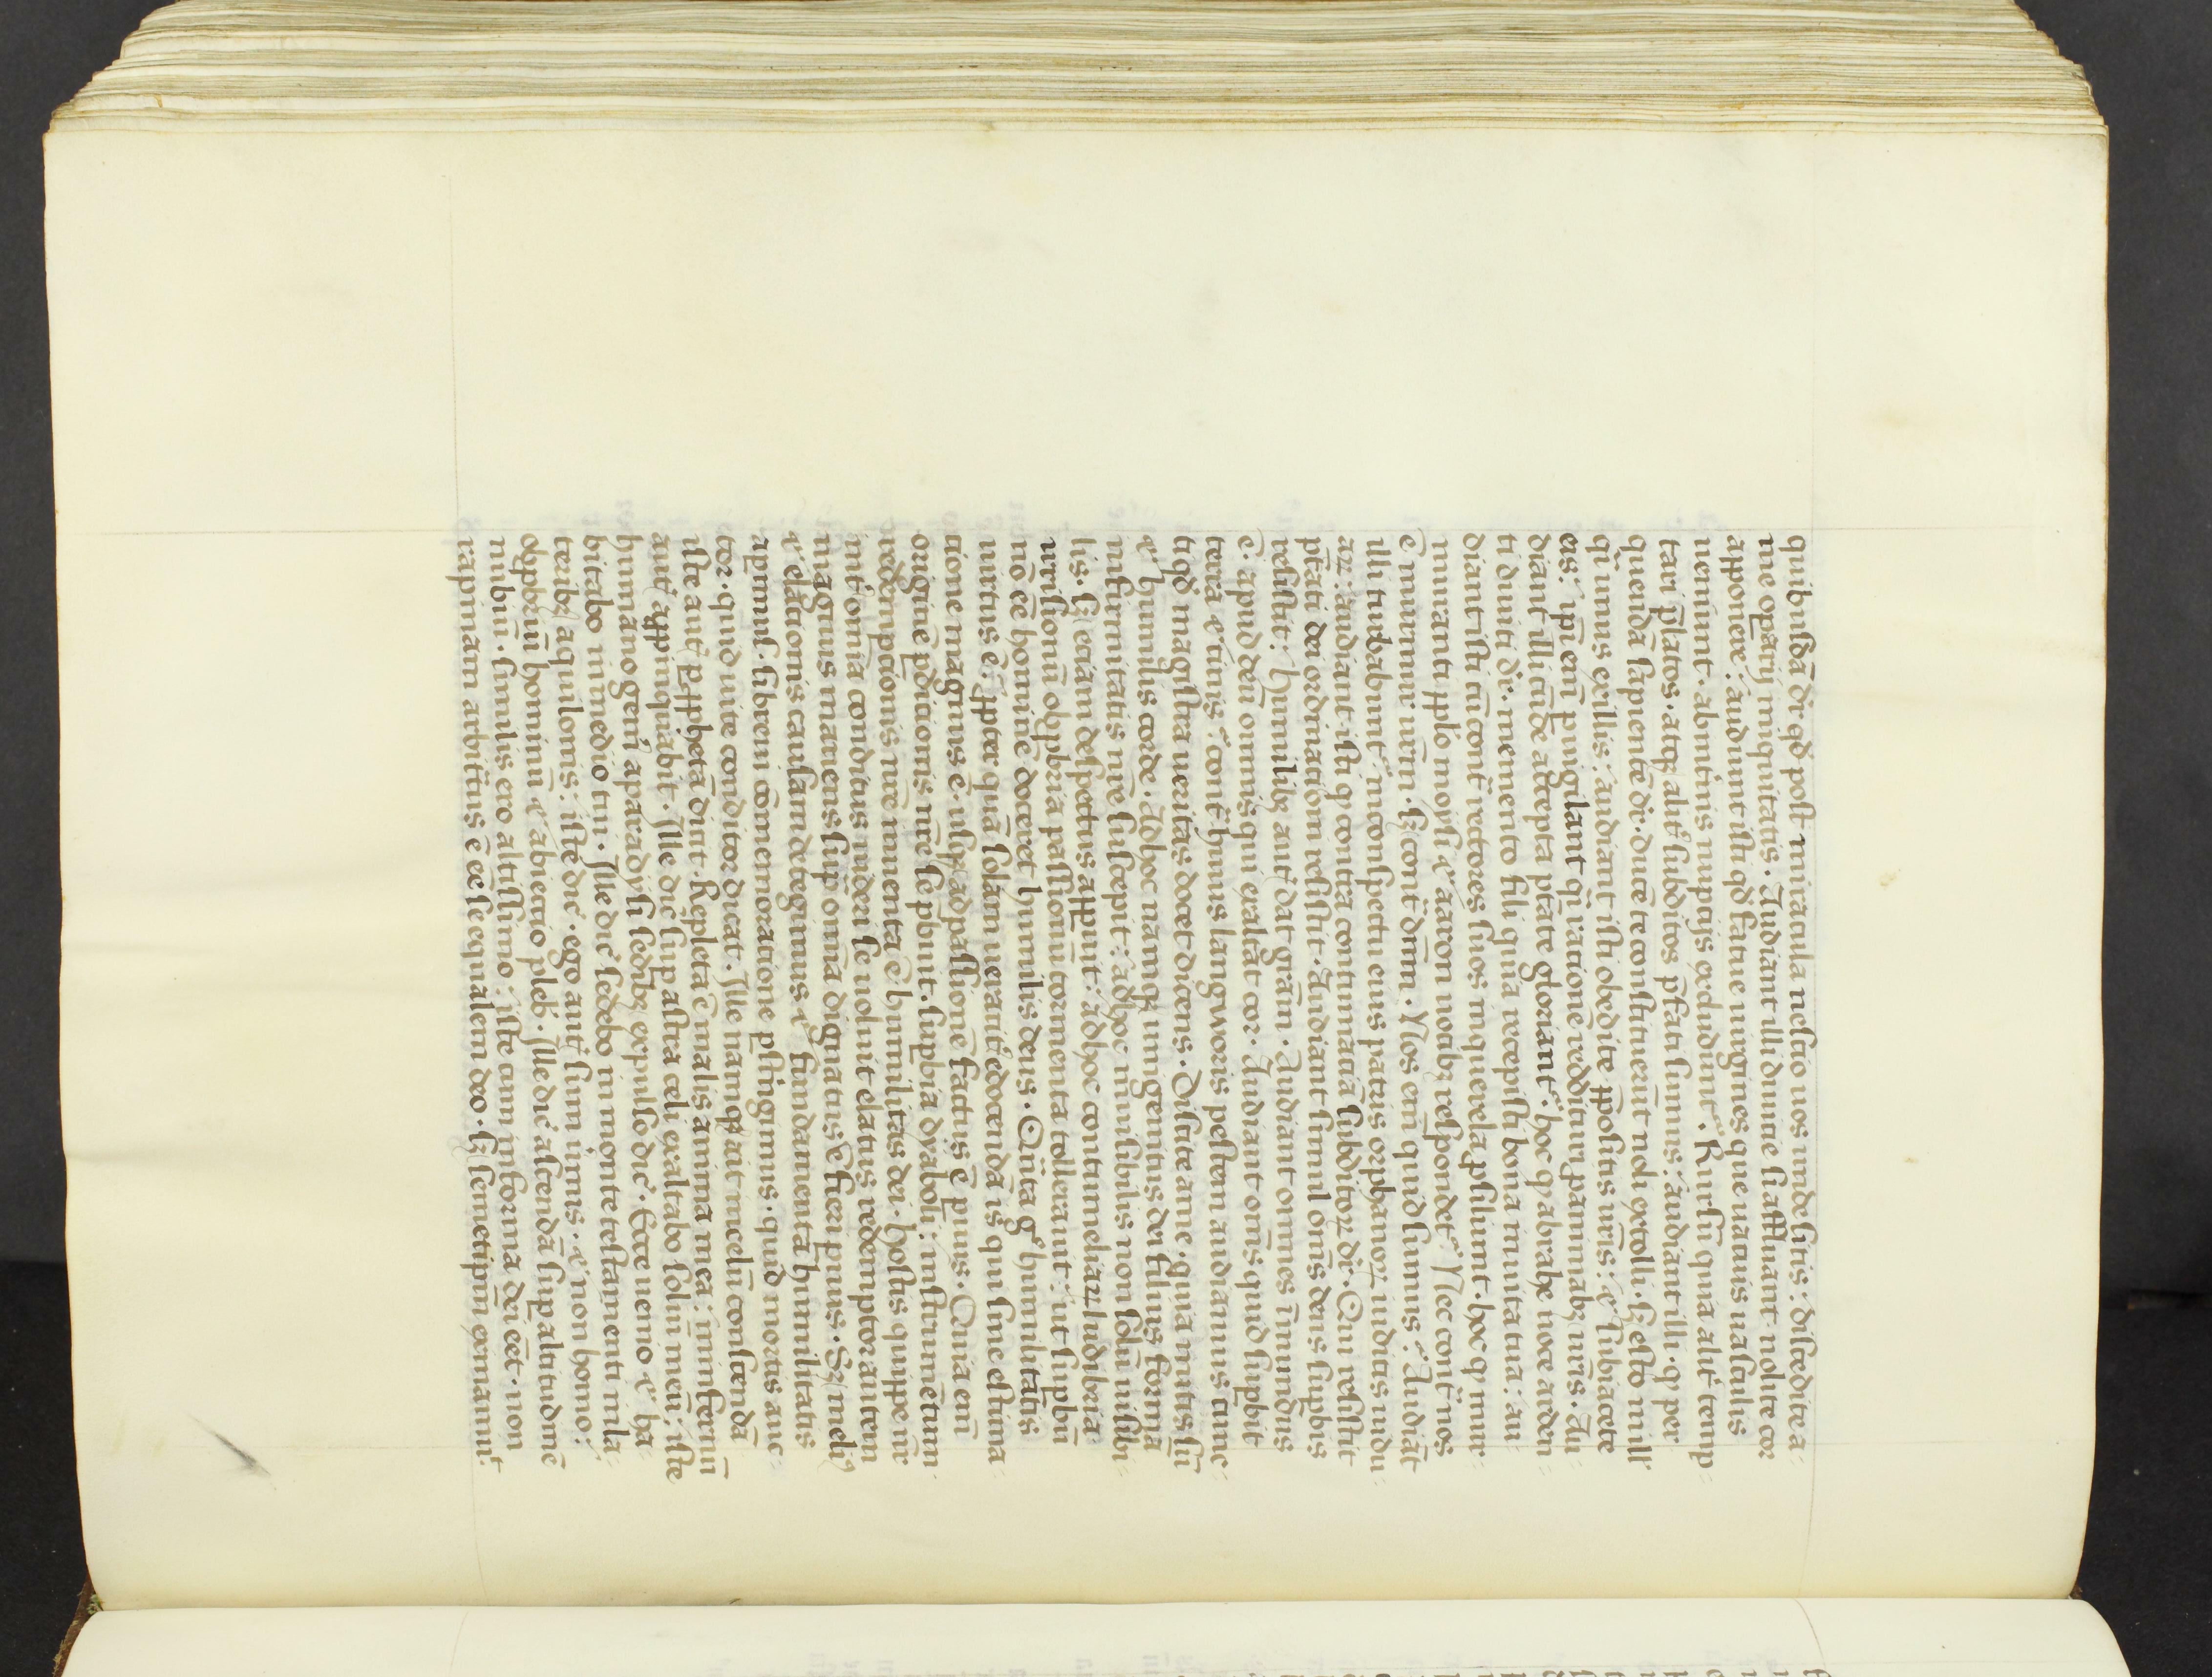 quibuſdā dr̄ qd̄ poſt miracula neſcio uos unde ſitis: diſcedite a
me opāry iniquitatis. Audiant illi diuitie ſi affluant nolite cor
apponere: audiunt iſti qd̄ fatue uirgines que uacuis uaſculis
ueniunt. ab intimis nuptijs excludunt᷑. Rurſū quia alit᷑ temp
tari p̄latos. atqꝫ alit᷑ ſubditos p̄fati ſumus: audiant illi. ꝙ per
quendā ſapientē dr̄. ducē te conſtituerūt noli extolli. ſꝫ eſto in ill'
qͥ unus ex illis: audiant iſti obedite ꝓpoſitis ur̄is: ⁊ ſubiacete
eis: ip̄i em̄ ꝑuigilant qͥ rationē reddituri ꝓ animabꝫ ur̄is. Au
diant illi cū de accepta ptāte gloriant᷑: hoc ꝙ abrahe uoce arden
ti diuiti dr̄. memento fili quia recepiſti bona in uita tua: au
diant iſti cū cont᷑ rectores ſuos in querela ꝓſiliunt. hoc ꝙ mur
muranti pplo moyſi ⁊ aaron uocibꝫ reſpondet᷑: Nec cont᷑ nos
ē murmur ur̄m. ſꝫ cont᷑ dn̄m. Nos em̄ quid ſumus: Audiāt
illi turbabunt᷑ in conſpectu eius patris orphanoꝝ iudicis uidu
aꝝ: audiant iſti ꝙ contra contumaciā ſubditoꝝ dr̄. Qui reſiſtit
ptāti dei ordinationi reſiſtit. Audiant ſimul om̄s deus ſuꝑbis
reſiſtit: humilibꝫ aut᷑ dat gr̄am. Audiant omnes īmundus
ē. apud deū omnis qui exaltat cor. Audiant om̄s quid ſuꝑbit
terra ⁊ cinis: cont᷑ huius langworis peſtem audiamus cunc
ti qd̄ magiſtra ueritas docet dicens. Diſcite a me. quia mitis ſū
⁊ humilis corde. Ad hoc namqꝫ unigenitus dei filius forma
infirmitatis nr̄e ſuſcepit: ad hoc inuiſibilis non ſolū uiſibi
lis. ſꝫ eciam deſpectus apparuit: ad hoc contumeliaꝝ ludibria
irriſionū obpbria paſſionū tormenta tollerauit: ut ſuꝑbū
nō eē hominē doceret humilis deus. Qͣnta gͦ humilitatis
uirtus ē: ꝓpter quā ſolam ueracit᷑ edocendā is qui ſine eſtima
tione magnus ē. uſqꝫ ad paſſionē factus ē paruus. Quia em̄
originē ꝑdicionis nr̄e ſe p̄buit ſuꝑbia dyaboli: inſtrumētum
redemptionis nr̄e inuenta ē humilitas dei. Hoſtis quippe nr̄
int᷑ omnia conditus uideri ſe uoluit elatus redemptor autem
magnus manens ſuꝑ omnia dignatus ē fieri paruus. Sꝫ meliꝰ
⁊ elationis cauſam detegimus ⁊ fundamenta humilitatis
aꝑimuſ. ſi breui comemoratione pſtͥngimus. quid mortis auc
tor. quid uite conditor dicat. Ille namqꝫ ait in celū conſcendā
iſte aut᷑ ꝑ ꝓphetā dicit. Repleta ē malis anima mea: in infernū
aut᷑ appinquabit. Ille dic᷑ ſuꝑ aſtra celi exaltabo ſoliū meū: iſte
humano geni᷑ a paradyſi ſedibꝫ expulſo dic᷑. Ecce uenio ⁊ ha
bitabo in medio tui. Ille dic᷑ ſedebo in monte teſtamenti in la
teribꝫ aquilonis: iſte dic᷑. ego aut᷑ ſum uͥmis. ⁊ non homo:
obpbriū hominū ⁊ abiectio pleb᷑. Ille dic᷑ aſcendā ſuꝑ altitudinē
nubiū. ſimilis ero altiſſimo: iſte cum in forma dei eēt. non
rapinam arbitͣtus ē eē ſe equalem deo. ſꝫ ſemetipm exinanīuit.